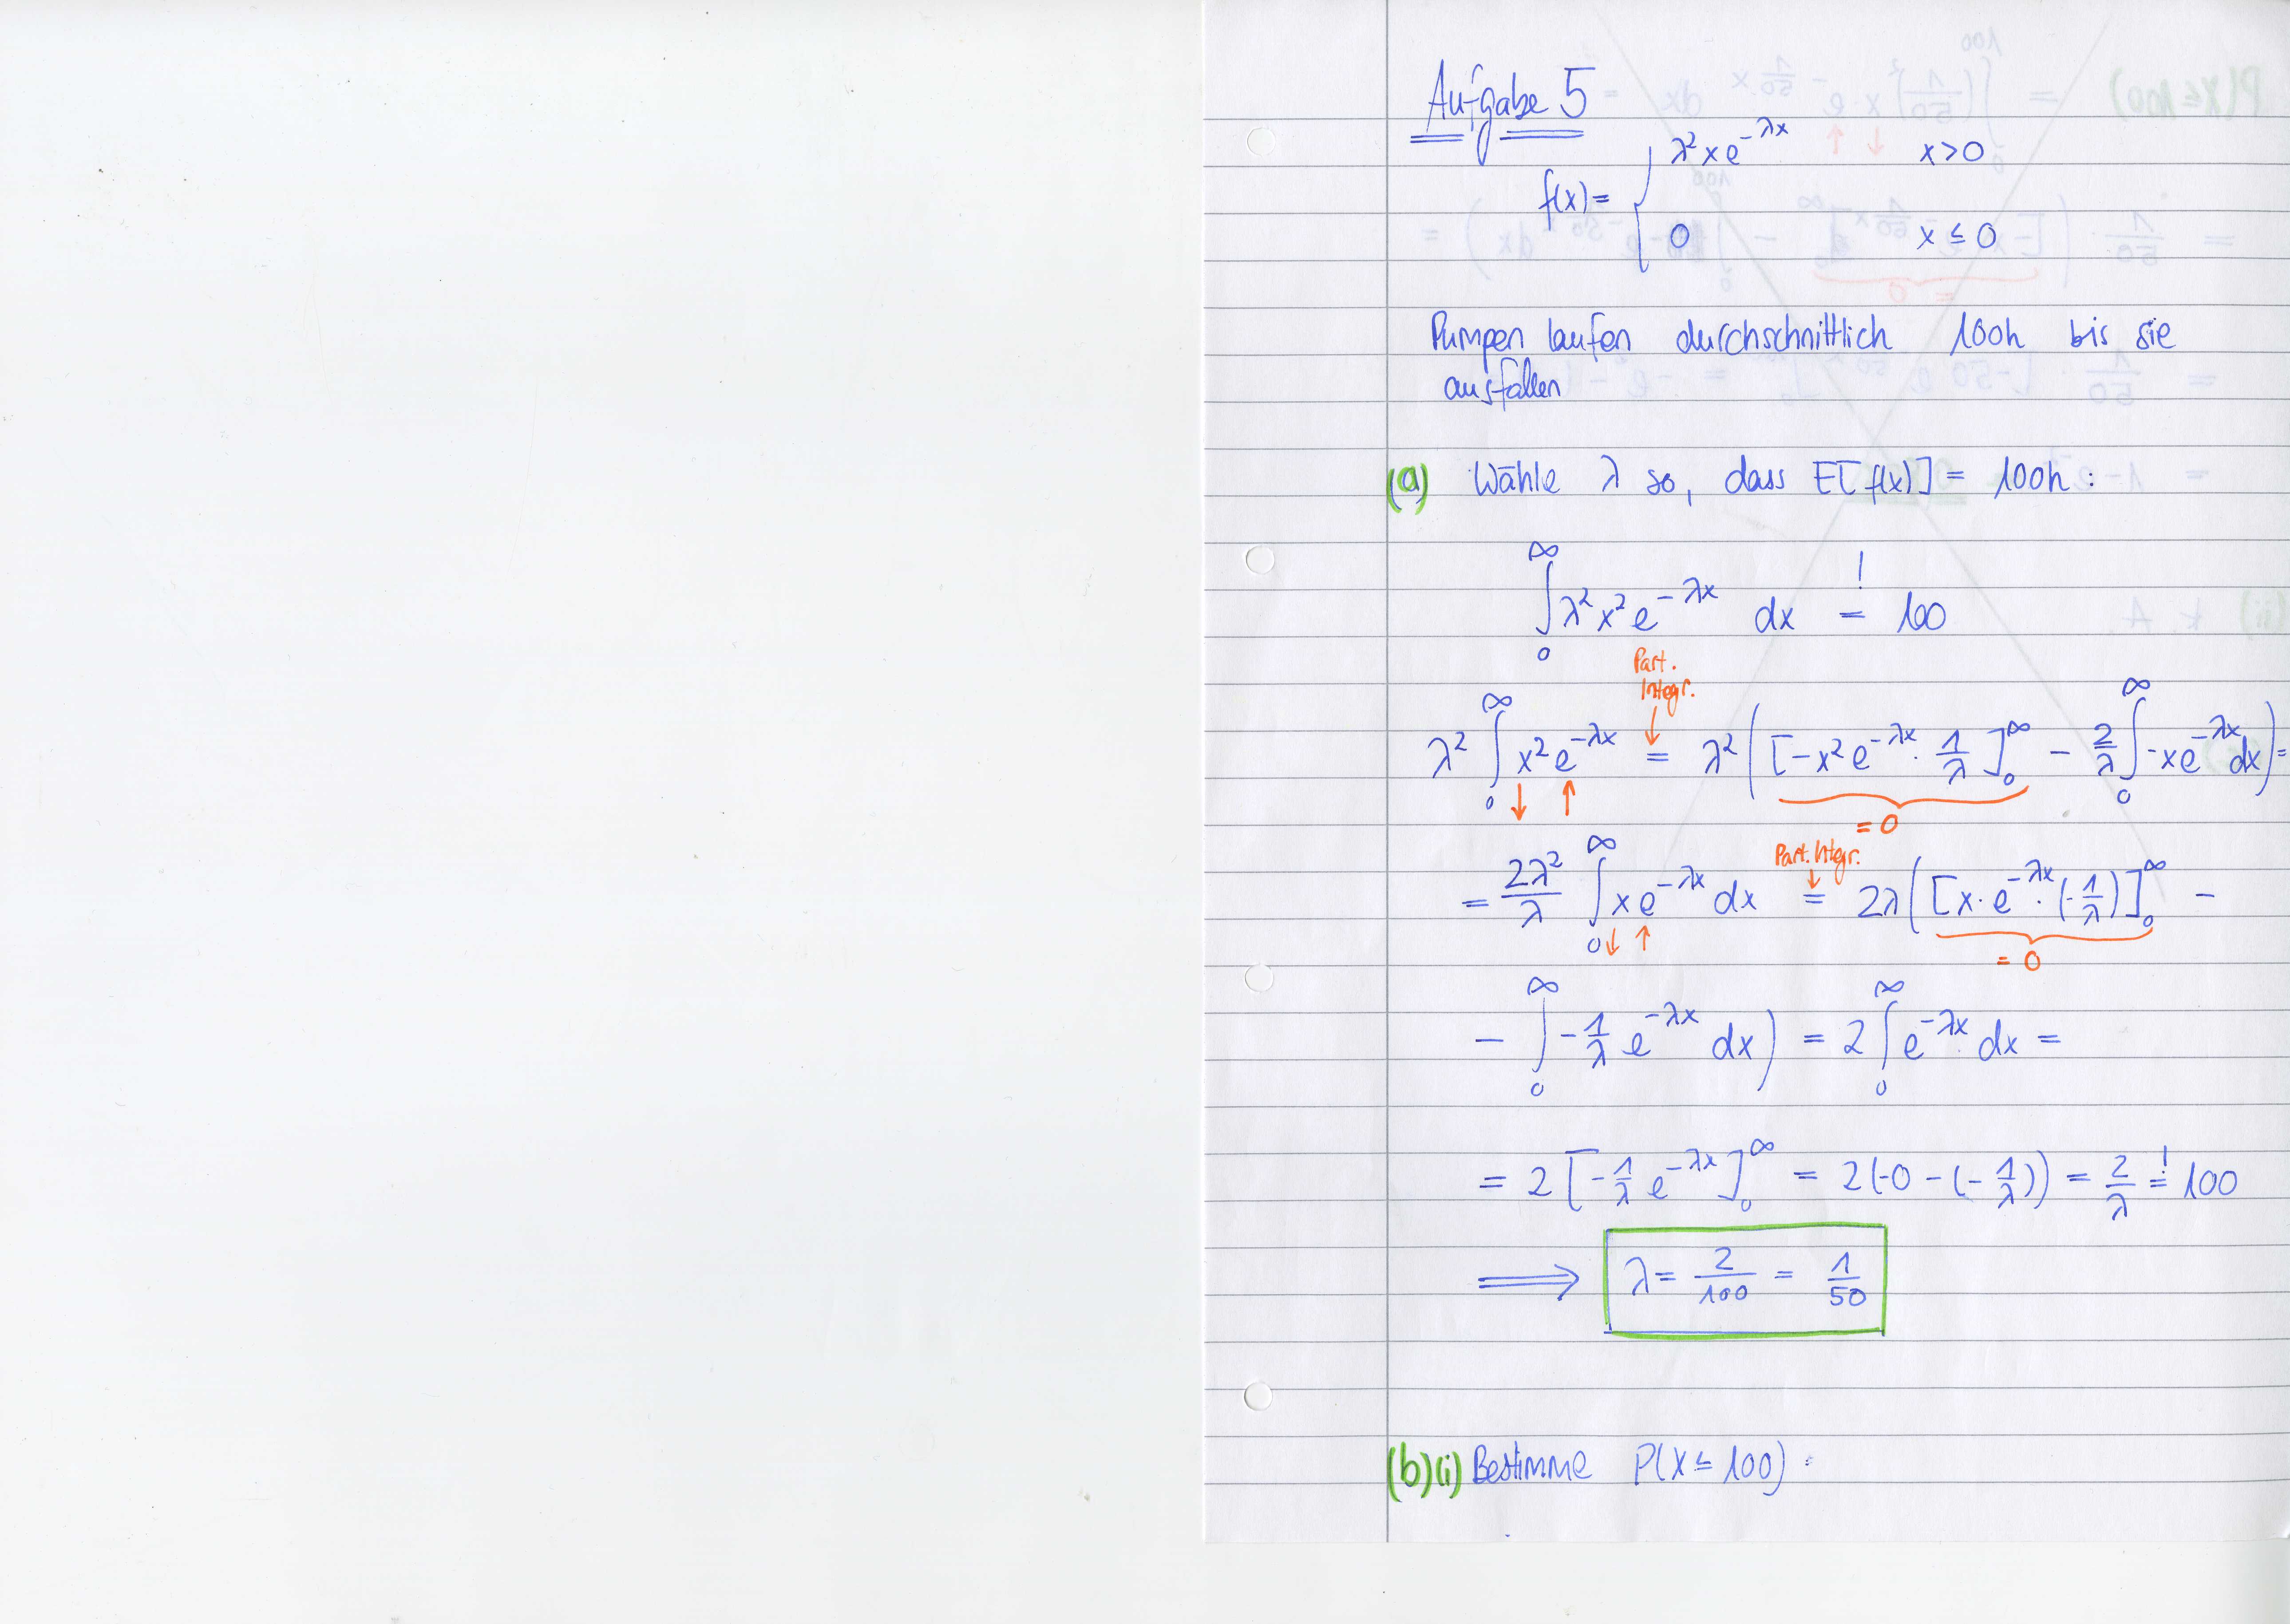 Aufgabe 5
f(x) = { λ² x e^{-λx}   x > 0
0   x ≤ 0
Pumpen laufen durchschnittlich 100h bis sie
ausfallen
(a) Wähle λ so, dass E[f(x)] = 100h :
∫_0^∞ λ² x² e^{-λx} dx =! 100
Part.
Integr.
λ² ∫_0^∞ x² e^{-λx} = λ² ( [-x² e^{-λx} · 1/λ]_0^∞ - 2/λ ∫_0^∞ -x e^{-λx} dx ) =
↓ ↑ = 0
Part. Integr.
= 2λ²/λ ∫_0^∞ x e^{-λx} dx = 2λ ( [x · e^{-λx} · (-1/λ)]_0^∞ -
↓ ↑ = 0
- ∫_0^∞ -1/λ e^{-λx} dx ) = 2 ∫_0^∞ e^{-λx} dx =
= 2 [-1/λ e^{-λx}]_0^∞ = 2(-0 - (-1/λ)) = 2/λ =! 100
⟹ λ = 2/100 = 1/50
(b)(i) Bestimme P(X ≤ 100) :